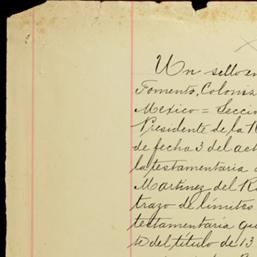 Un sello en
Fomento, Coloni
Mexico = Secció
Presidente de la R
de fecha 3 del act
la testamentaria
Martinez del R
trazo de límites
testamentaría qu
te del título de 13